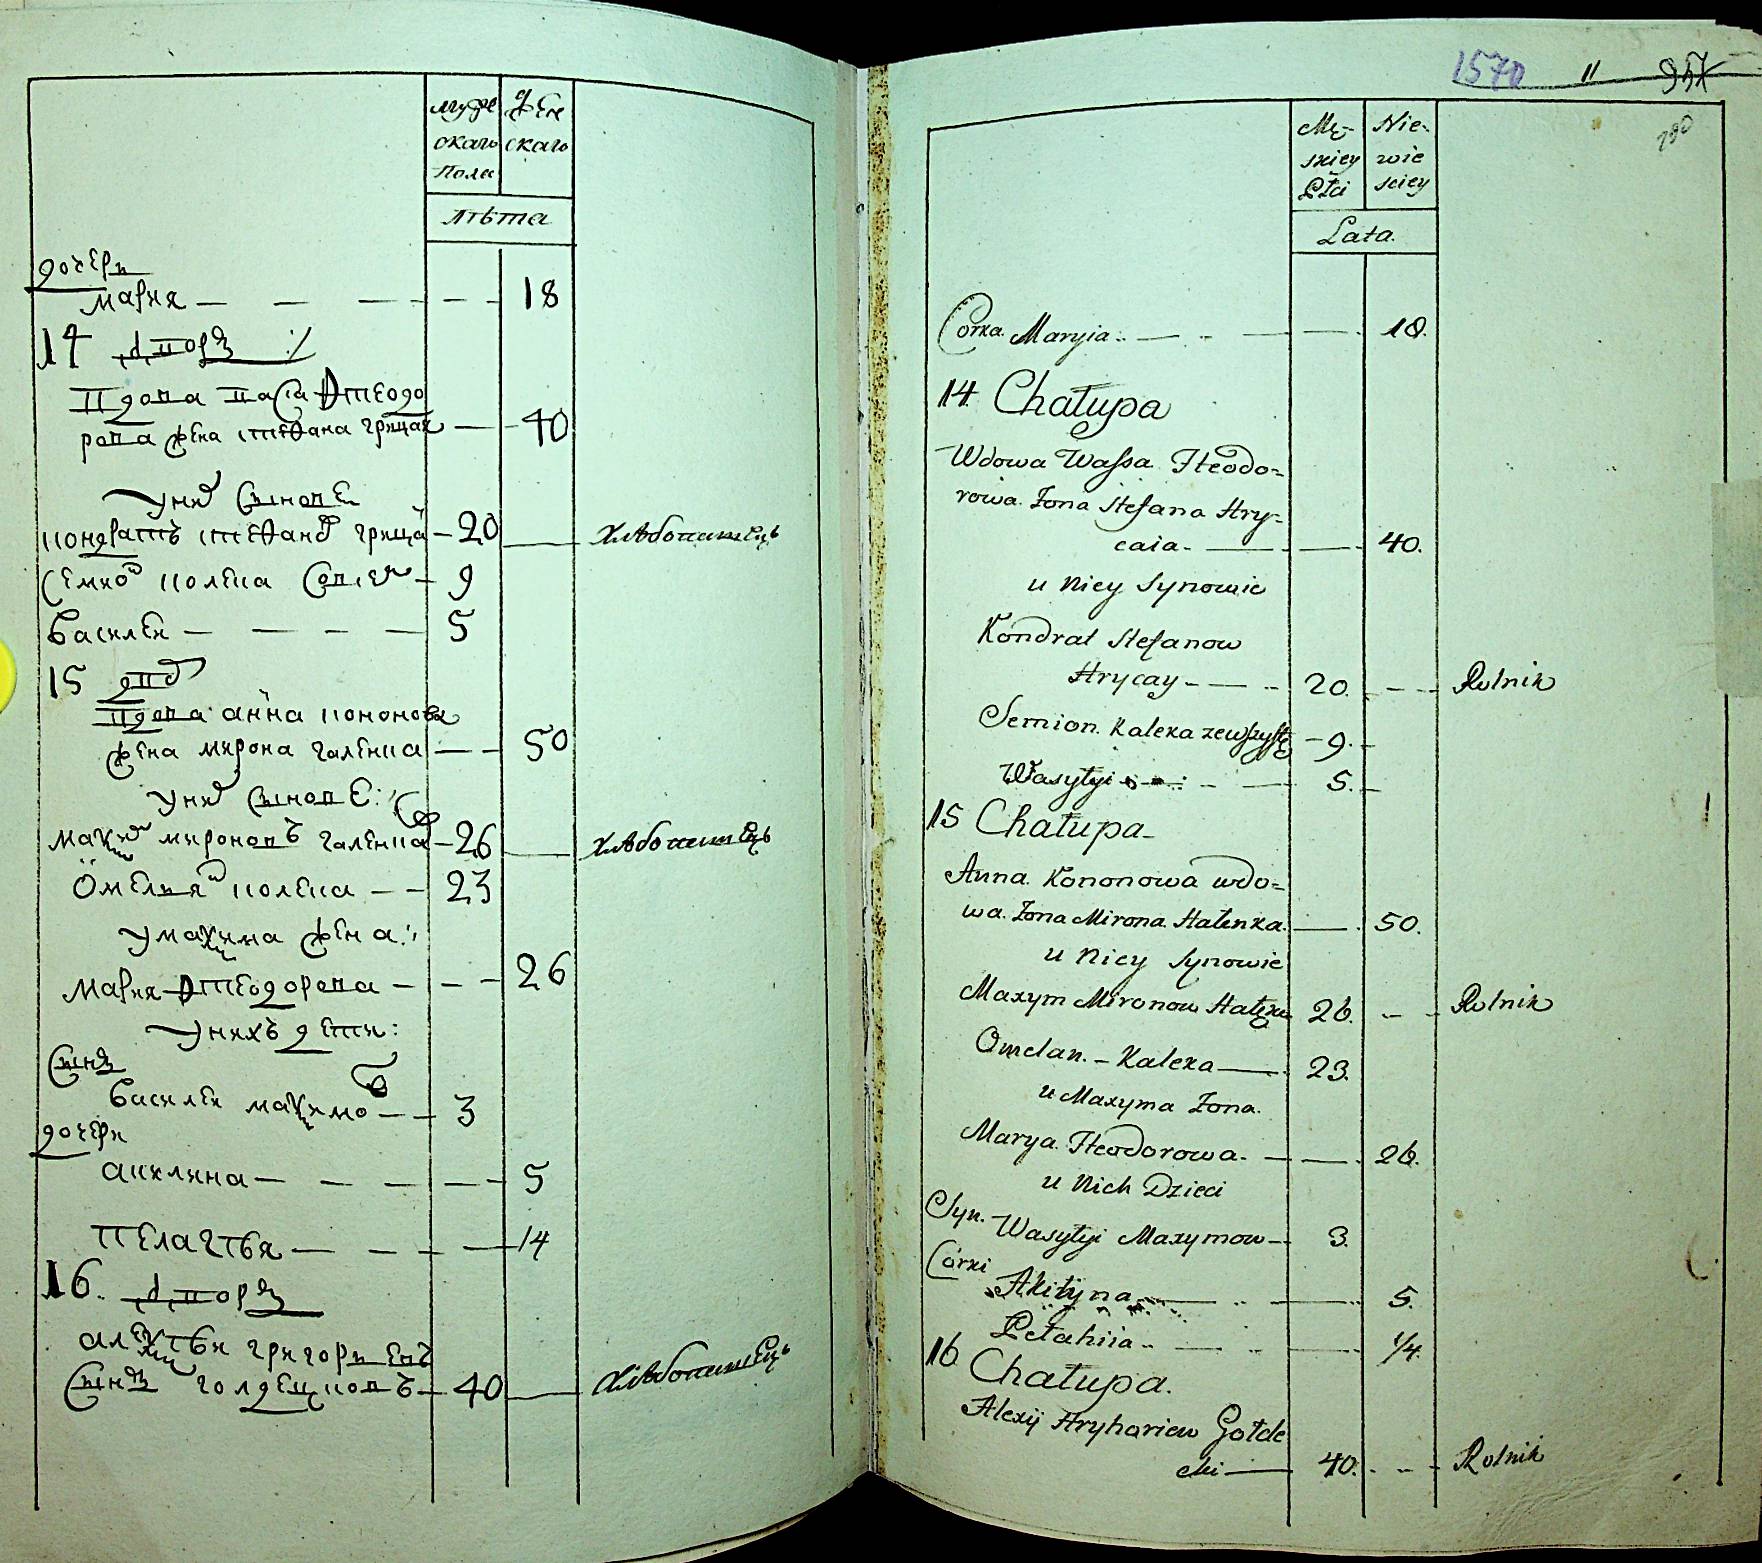 муже
ского
пола
жен
ского
лѣта
дочери
Мария — — — — — 18
14 дворъ
Вдова Васа Ѳтеодо
рова жена Стефана грицая — 40
у них сынове
Кондратъ Стефанов грицай — 20 — хлѣбопашецъ
Семион калека совсем — 9
Василей — — — — 5
15 двор
Вдова анна кононова
жена мирона галенка — — 50
у ней сынове:
Максим мироновъ галенка — 26 — хлѣбопашецъ
Омелиян колека — — 23
у максима жена:
Мария Ѳтеодорова — — — 26
у нихъ дети:
Сынъ
Василей максимов — — 3
дочери
акилина — — — — — 5
пелагѣя — — — — 14
16. дворъ
алексѣи григориевъ
сынъ голдецковъ — 40 — хлѣбопашецъ
1570 11 957
290
Mę-
skiey
Płci
Nie-
wie
sciey
Lata.
Corka Maryia — — — 18.
14. Chałupa
Wdowa Wassa Fteodo=
rowa Żona Stefana Hry-
caia — — 40.
u niey Synowie
Kondrat Stefanow
Hrycay — — 20. — — Rolnik
Semion Kaleka zewszystk — 9. —
Wasyłyi — — 5. —
15 Chałupa
Anna Kononowa wdo=
wa Żona Mirona Halenka — 50.
u niey Synowie
Maxym Mironow Halenk 26. — — Rolnik
Omelan — Kaleka — 23.
u Maxyma Żona
Marya Fteodorowa — — 26.
u nich Dzieci
Syn.
Wasyłyi Maxymow — 3.
Córki
Akiłyna — — — 5.
Pełahiia — — — 14.
16. Chałupa.
Alexij Hryhoriew Gołde
cki — 40. — — Rolnik